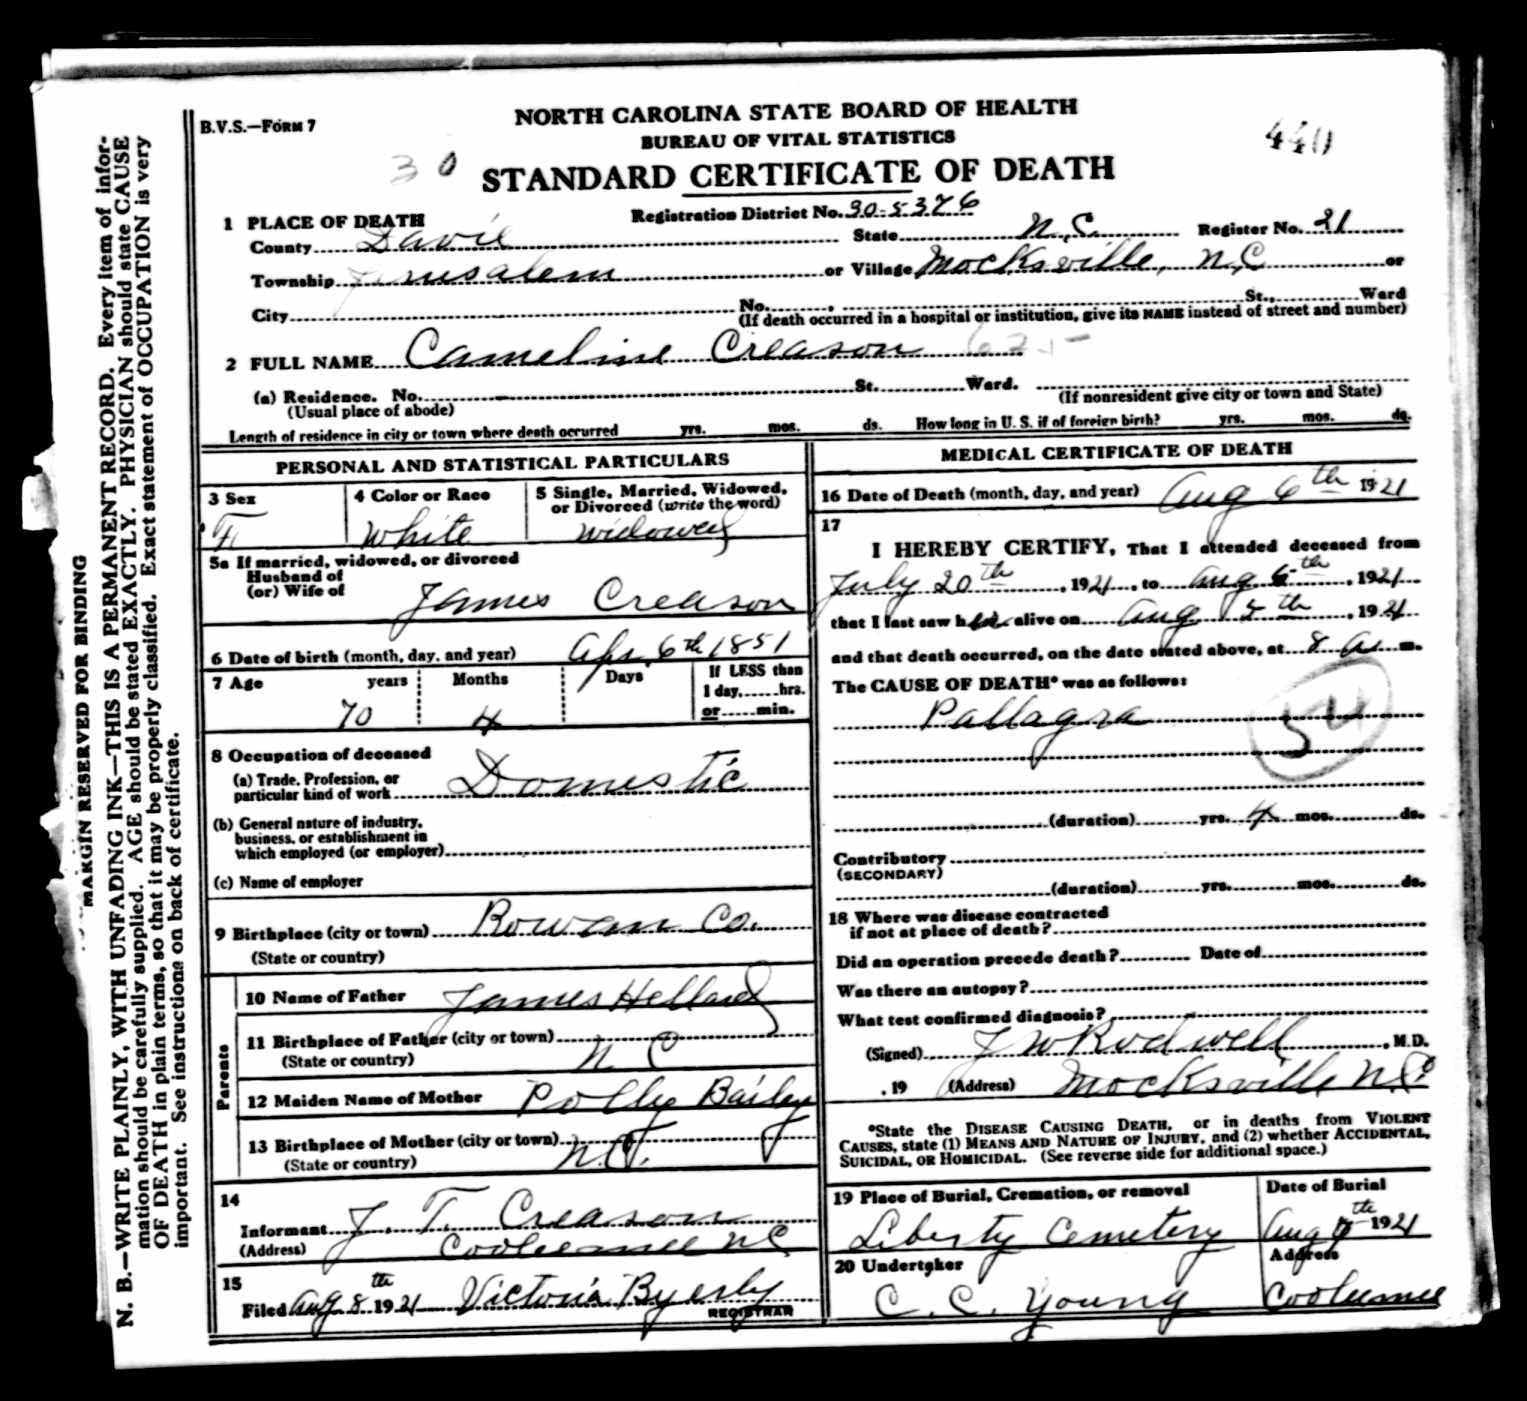 B.V.S.—FORM 7
NORTH CAROLINA STATE BOARD OF HEALTH
BUREAU OF VITAL STATISTICS
30
440
STANDARD CERTIFICATE OF DEATH
1 PLACE OF DEATH Registration District No. 30-5376
County Davie State N.C. Register No. 21
Township Jerusalem or Village Mocksville, N.C. or
City No. , St., Ward
(If death occurred in a hospital or institution, give its NAME instead of street and number)
2 FULL NAME Cameline Creason
(a) Residence. No. St. Ward.
(Usual place of abode) (If nonresident give city or town and State)
Length of residence in city or town where death occurred yrs. mos. ds. How long in U. S. if of foreign birth? yrs. mos. ds.
PERSONAL AND STATISTICAL PARTICULARS
3 Sex 4 Color or Race 5 Single, Married, Widowed, or Divorced (write the word)
F White widowed
5a If married, widowed, or divorced
Husband of
(or) Wife of James Creason
6 Date of birth (month, day, and year) Apr. 6th 1851
7 Age years Months Days If LESS than
1 day, hrs.
70 4 or min.
8 Occupation of deceased
(a) Trade, Profession, or
particular kind of work Domestic
(b) General nature of industry,
business, or establishment in
which employed (or employer)
(c) Name of employer
9 Birthplace (city or town) Rowan Co.
(State or country)
Parents
10 Name of Father James Hellard
11 Birthplace of Father (city or town)
(State or country) N C
12 Maiden Name of Mother Polly Bailey
13 Birthplace of Mother (city or town)
(State or country) N.C.
14
Informant J. T. Creason
(Address) Cooleemee N.C.
15
Filed Aug 8th 1921 Victoria Byerly
REGISTRAR
MEDICAL CERTIFICATE OF DEATH
16 Date of Death (month, day, and year) Aug 6th 1921
17
I HEREBY CERTIFY, That I attended deceased from
July 20th, 1921, to Aug 6th, 1921
that I last saw her alive on Aug 5th, 1921
and that death occurred, on the date stated above, at 8 a. m.
The CAUSE OF DEATH* was as follows:
Pallagra
54
(duration) yrs. 4 mos. ds.
Contributory
(SECONDARY)
(duration) yrs. mos. ds.
18 Where was disease contracted
if not at place of death?
Did an operation precede death? Date of
Was there an autopsy?
What test confirmed diagnosis?
(Signed) J W Rodwell, M.D.
, 19 (Address) Mocksville N.C.
*State the DISEASE CAUSING DEATH, or in deaths from VIOLENT
CAUSES, state (1) MEANS AND NATURE OF INJURY, and (2) whether ACCIDENTAL,
SUICIDAL, OR HOMICIDAL. (See reverse side for additional space.)
19 Place of Burial, Cremation, or removal Date of Burial
Liberty Cemetery Aug 1921
20 Undertaker Address
C. C. Young Cooleemee
MARGIN RESERVED FOR BINDING
N. B.—WRITE PLAINLY, WITH UNFADING INK—THIS IS A PERMANENT RECORD. Every item of infor-
mation should be carefully supplied. AGE should be stated EXACTLY. PHYSICIAN should state CAUSE
OF DEATH in plain terms, so that it may be properly classified. Exact statement of OCCUPATION is very
important. See instructions on back of certificate.